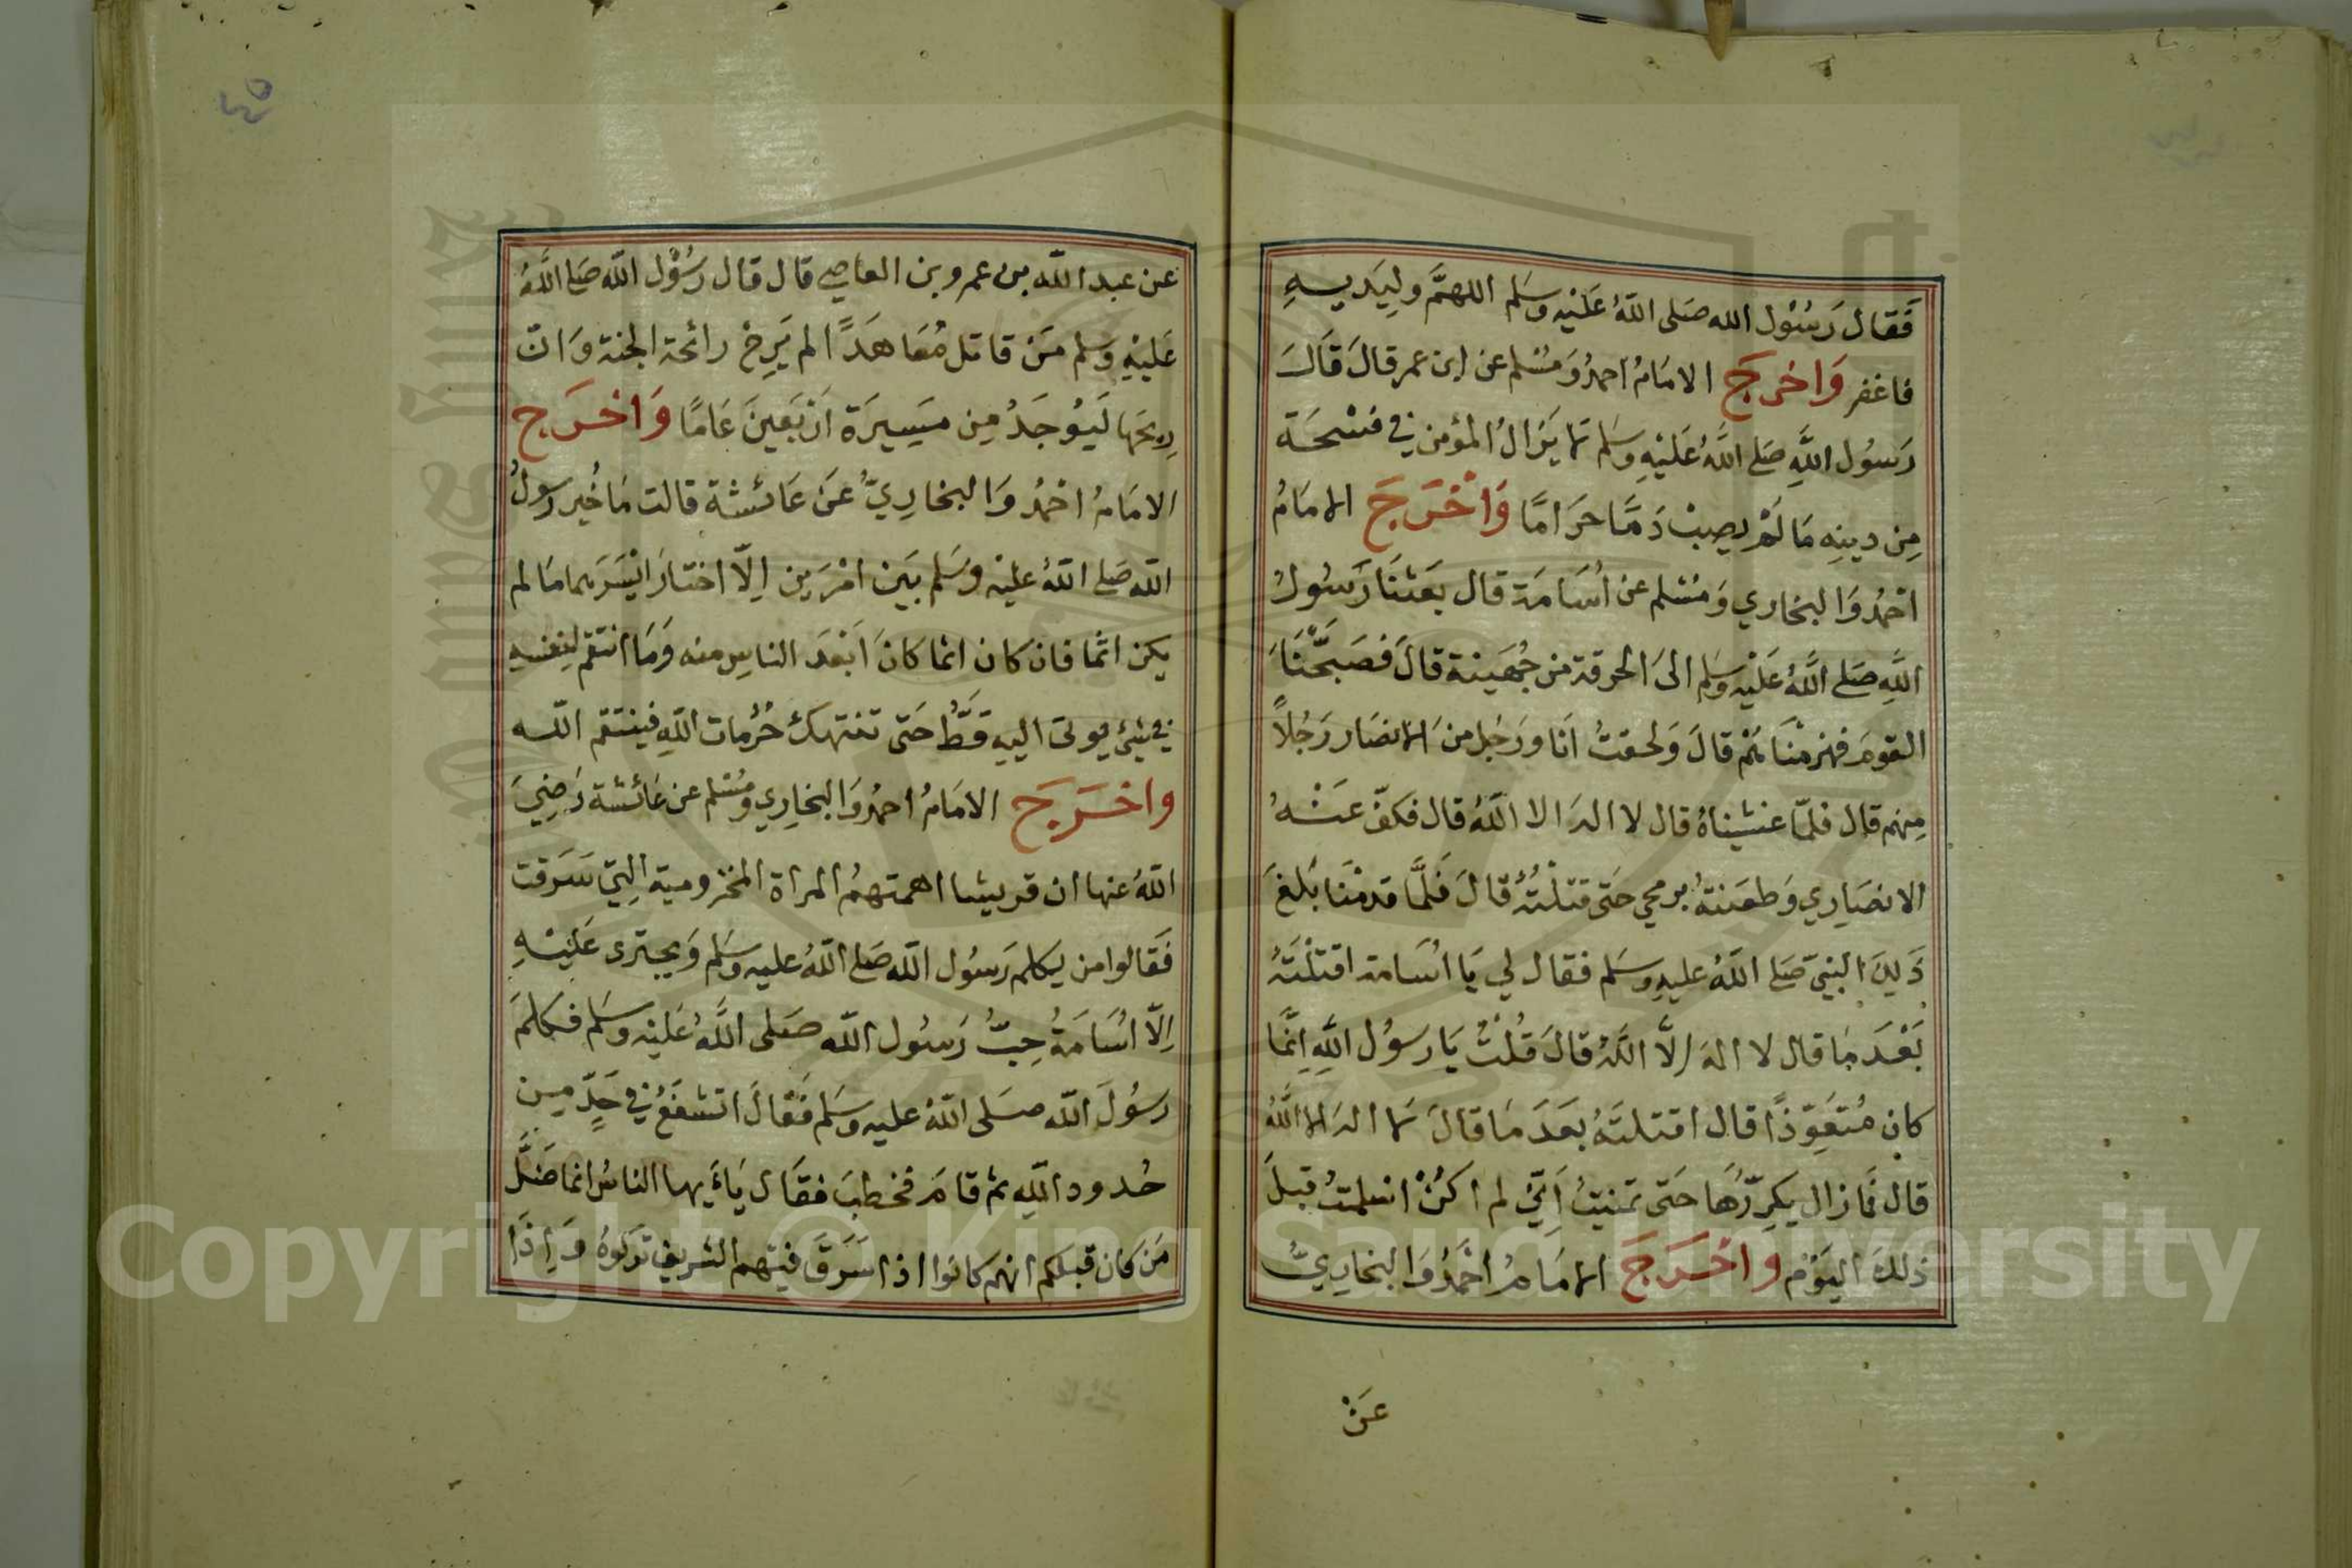 فَقَال رَسُوْل الله صَلى اللهُ عَلَيْهِ وسَلم اللهمَّ ولِيَديهِ
فاغفر وَاخرجَ الامَامُ احمدُ وَمُسْلم عن ابن عمر قالَ قَالَ
رَسُول اللهِ صَلى اللهُ عَلَيْهِ وسَلم لَا يَزالُ المؤمن في فسْحَة
مِن دينِهِ مَا لَمْ يصِبْ دَمًّا حرَامًا وَاخْرَجَ الامَامُ
احمدُ وَالبخاري وَمسْلم عن اُسَامَة قال بَعَثنَا رَسُولُ
اللهِ صَلى اللهُ عَلَيْهِ وسَلم الىَ الحرقة من جُهَينة قالَ فَصَبَّحْنَا
القومَ فهزمْنَا هُمْ قالَ وَلحقتُ انَا ورَجُل منَ الانصَار رَجُلاً
مِنهم قال فلمّا غشيْناهُ قال لا الهَ الا اللهُ قال فكفّ عَنْهُ
الانصَارِي وَطعَنتهُ برمحي حَتى قتلْتُهُ قالَ فَلَمَّا قدمْنَا بَلغَ
ذَلِكَ النبيّ صَلى اللهُ عليهِ وسَلم فقال لي يَا اسَامة اقتلْتَهُ
بَعْدَ مَا قال لا الهَ اِلاَّ اللهُ قالَ قُلْتُ يَا رسوُل اللهِ اِنَّمَا
كان مُتعَوِّذًا قال اقتلتَهُ بعَدَ مَا قالَ لا الهَ الا اللهُ
قال فمَا زال يكرِّرُهَا حَتى تمنيتُ اَنّي لم اكنْ اسْلمتُ قبلَ
ذلكَ اليَوْم وَاخْرَجَ الامَامُ احْمَدُ وَالبخَارِيُّ
عَنْ
عن عبد الله بن عمرو بن العاصي قال قال رَسُوُل الله صَلى اللهُ
عَليْهِ وَسلم مَن قاتل مُعَاهَدًا لم يَرِحْ رائحة الجنة وَانّ
رِيحَها لَيُوجَدُ مِن مَسِيرَة اَرْبَعينَ عَامًا وَاخرَج
الامَامُ احْمدُ وَالبخارِيّ عَنْ عَائشة قالت مَا خُير رسولُ
الله صَلى اللهُ عليْهِ وسَلم بَيَن امْرَين اِلّا اختارَ ايْسَرَهما مَا لم
يكن اثمًا فان كان اثما كانَ اَبْعَدَ الناسِ منه وَمَا انتقم لِنفسِهِ
في شَيْءٍ يوتى اليهِ قَطُّ حَتى تنتهكَ حُرُمات اللهِ فينتقم الله
واخرَجَ الامَامُ احمدُ وَالبخارِي ومُسْلم عن عَائشة رَضِيَ
اللهُ عنها ان قريشا اهمتهمُ المراة المخزومية التي سَرَقت
فقَالوا من يكلم رَسُول الله صَلى اللهُ عليه وسَلم وَيجترى عَليْهِ
اِلّا اسَامَةُ حِبُّ رَسُول الله صَلى اللهُ عَليْهِ وسَلم فكلمَ
رسُولَ الله صَلى اللهُ عليه وسَلم فقَالَ اتشفعُ في حَدٍّ مِن
حُدود اللهِ ثم قامَ فخطبَ فقَال يَاءَيها الناسُ انما ضَلَّ
مَن كان قبلكم انهم كانوا اذا سَرَقَ فيهم الشريف تركوهُ وَاِذَا